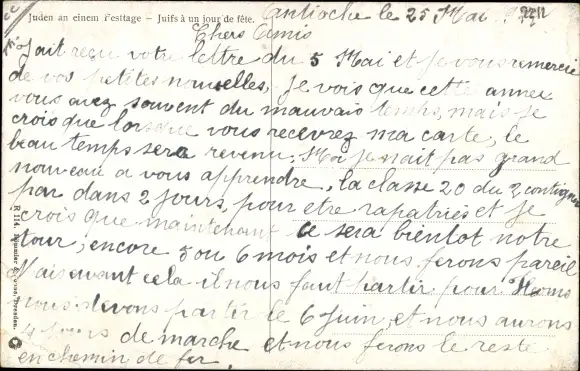 Juden an einem Festtage – Juifs à un jour de fête.
Antioche le 25 Mai
Chers Amis
J'ait reçu votre lettre du 5 Mai et je vous remercie
de vos petites nouvelles, Je vois que cette annee
vous avez souvent du mauvais temps, mais je
crois que lorsque vous recevrez ma carte, le
beau temps sera revenu. Moi Je n'ait pas grand
nouveau a vous apprendre, la classe 20 du 2
par dans 2 jours, pour etre rapatriés et je
crois que maintenant ce sera bientot notre
tour, encore 5 ou 6 mois et nous ferons pareil
Mais avant cela il nous faut partir pour Homs
nous devons partir le 6 Juin, et nous aurons
4 jours de marche et nous ferons le reste
en chemin de fer.
R 114. Dresden.